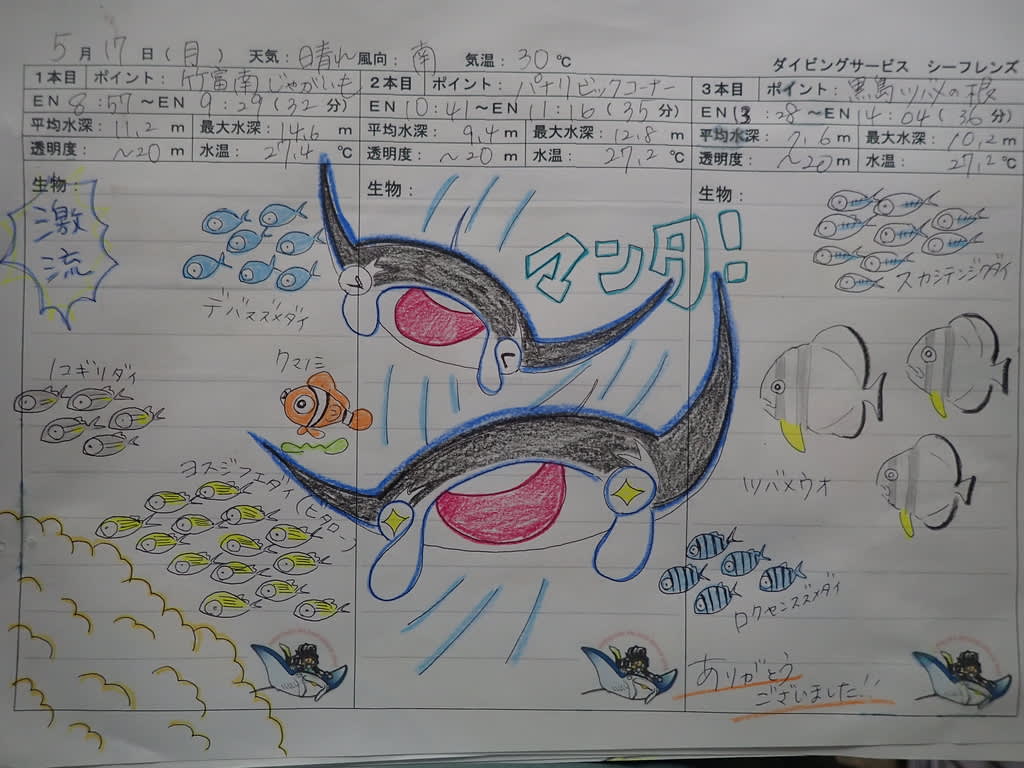 5月17日(月) 天気:晴れ 風向:南 気温:30℃
ダイビングサービス シーフレンズ
1本目 ポイント:竹富南じゃがいも
EN 8:57〜EN 9:29(32分)
平均水深:11.2m 最大水深:14.6m
透明度:〜20m 水温:27.4℃
生物:
激流
デバスズメダイ
ノコギリダイ
クマノミ
ヨスジフエダイ
2本目 ポイント:パナリビックコーナー
EN 10:41〜EN 11:16(35分)
平均水深:9.4m 最大水深:12.8m
透明度:〜20m 水温:27.2℃
生物:
マンタ!
3本目 ポイント:黒島ツバメの根
EN 13:28〜EN 14:04(36分)
平均水深:7.6m 最大水深:10.2m
透明度:〜20m 水温:27.2℃
生物:
スカシテンジクダイ
ツバメウオ
ロクセンスズメダイ
ありがとう
ございました!!